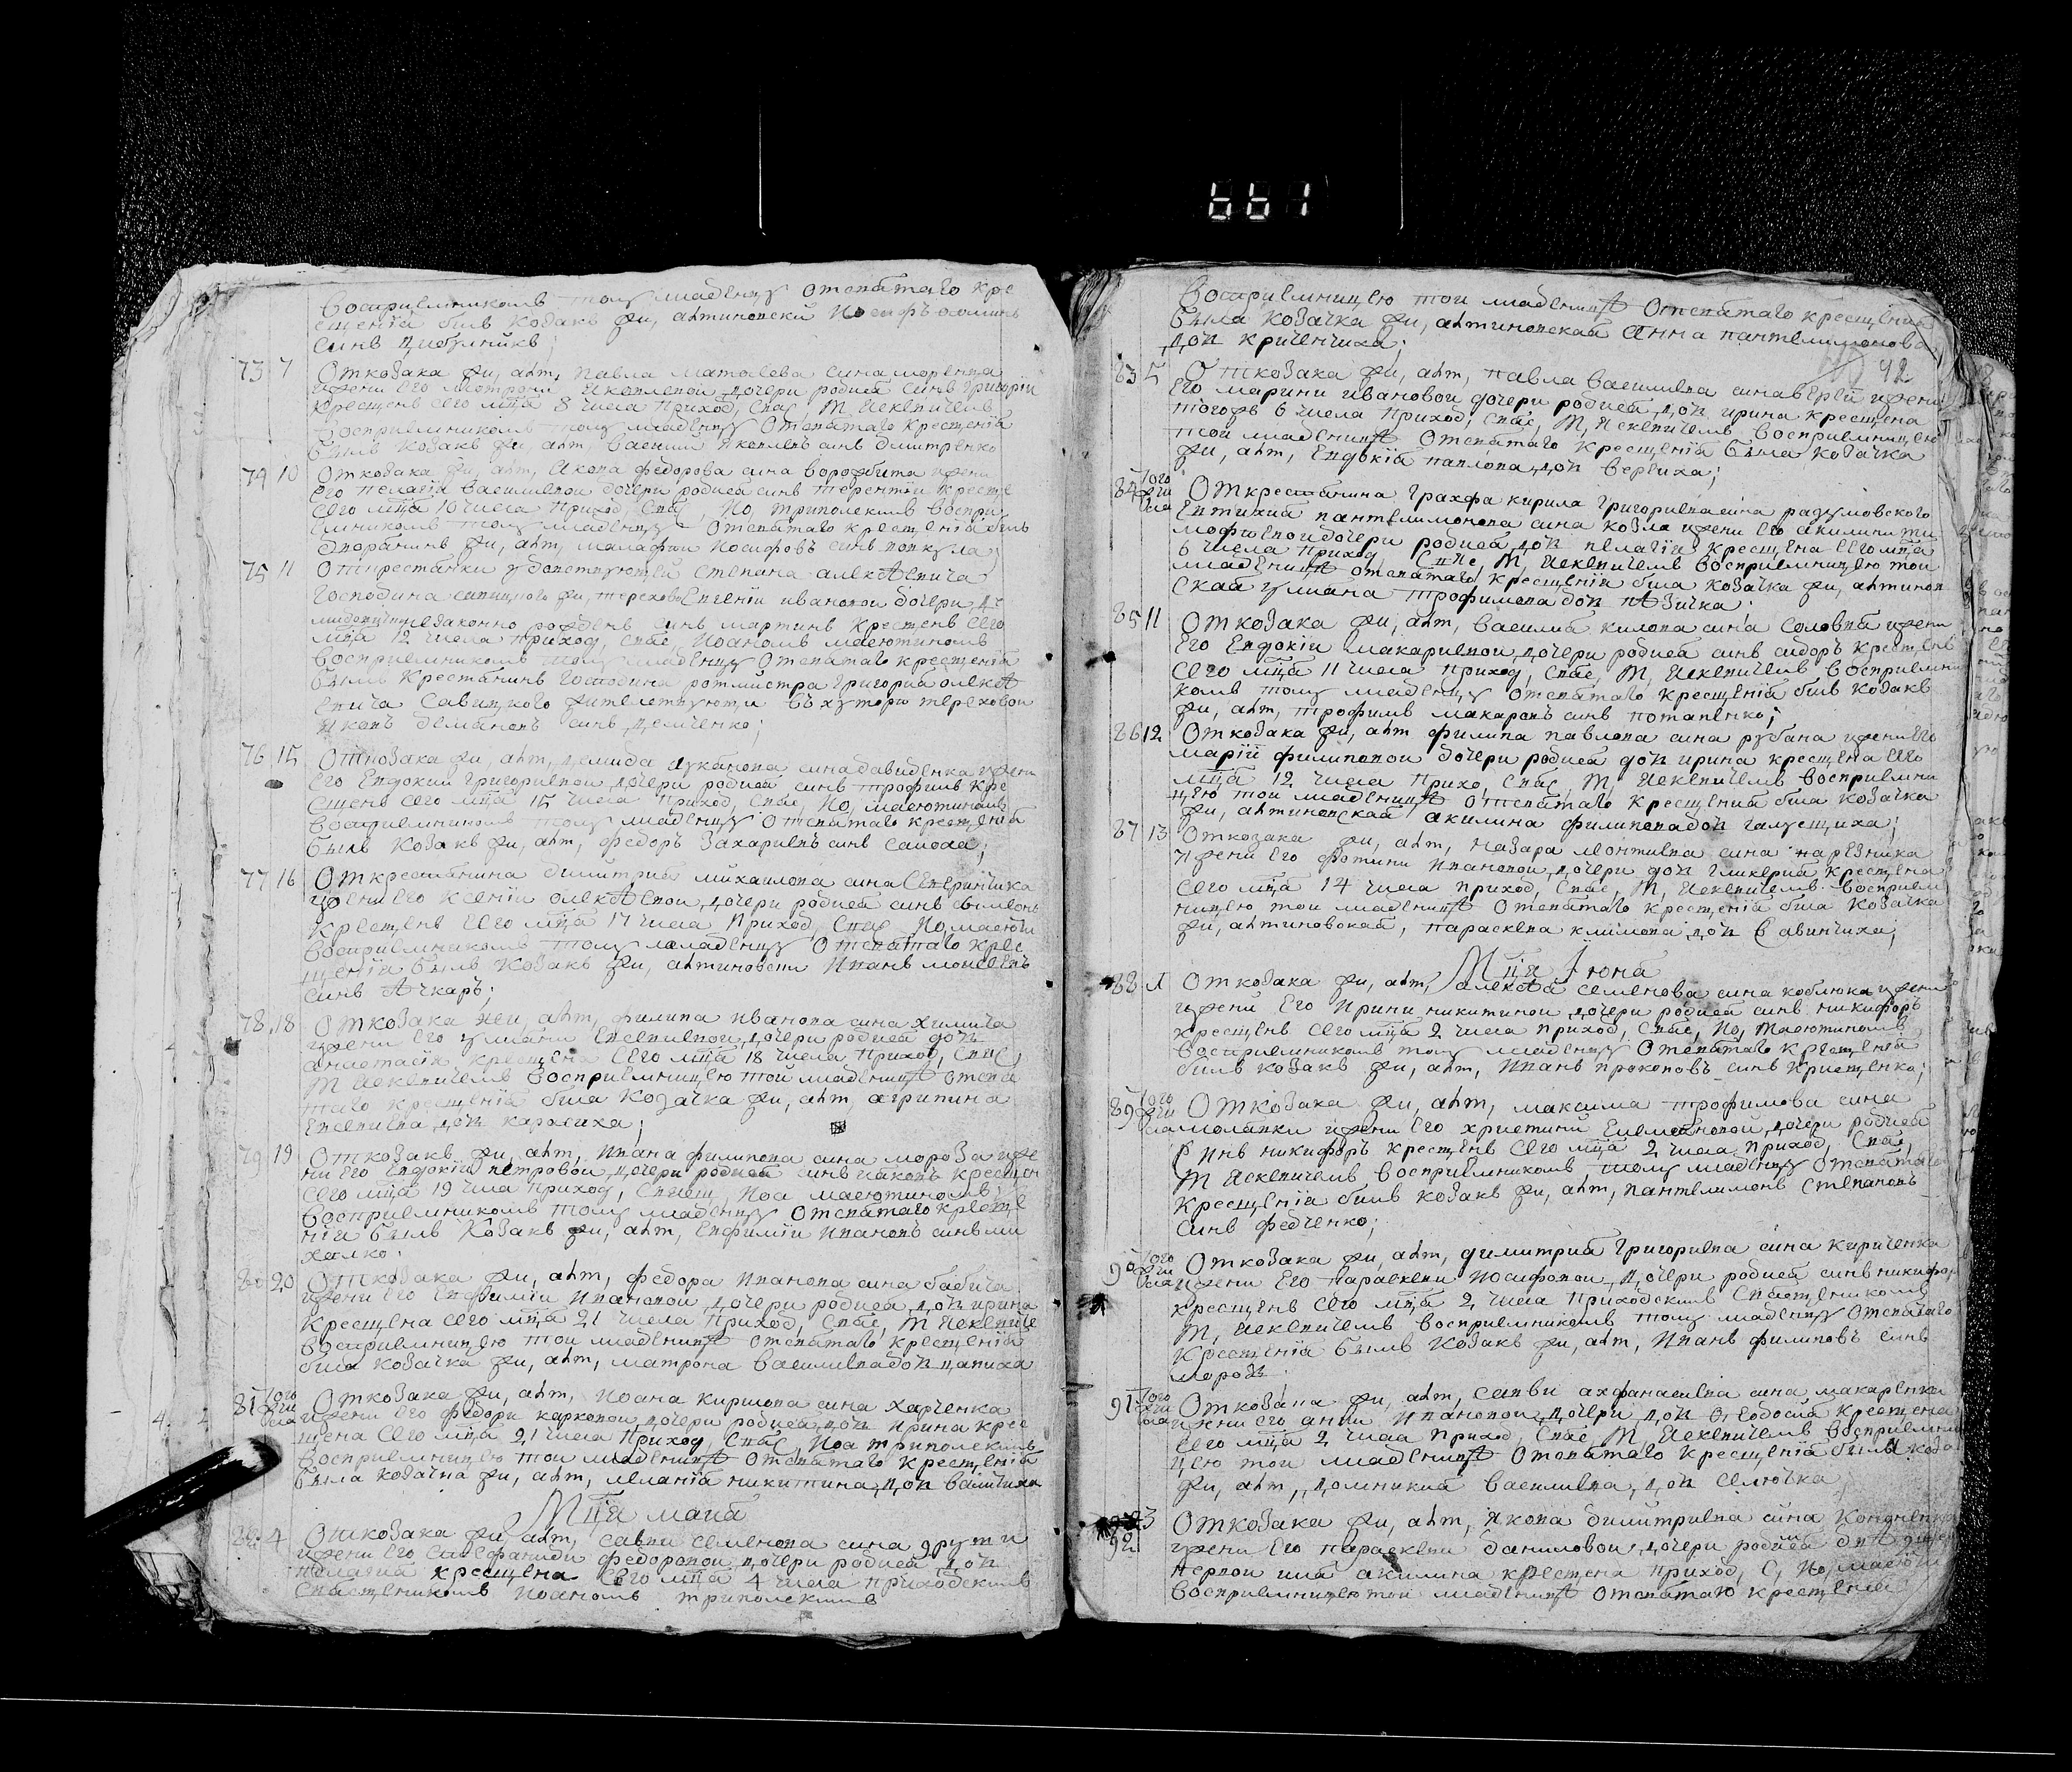 661
Восприемникомъ тому младенцу отсвятаго кре
щенія билъ козакъ жи, антиповски Иосифъ
синъ Цибулникъ;
73 7 Откозака жи, ант, павла матвеева сина моренца
ижени его мотрони Яковлевой дочери родися синъ григорій
крещенъ сего мца 8 числа приход, спас, М, Яскевичемъ
восприемникомъ тому младенцу отсвятаго крещенія
билъ козакъ жи, ант, василий Яковлевъ синъ дмитренко
74 10 Откозака жи, ант, Якова федорова сина воробита ижени
его пелагіи василиевой дочери родися синъ терентій креще
сего мца 10 числа приход, спас, Ио, триполскимъ воспри
емникомъ тому младенцу отсвятаго крещенія билъ
дворянинъ жи, ант, малафтеи иосифовъ синъ
75 11 Открестянки удовствующей степана алексѣевича
господина жи, терехово Евгеніи ивановой дочери
незаконно рожденъ синъ мартинъ крещенъ сего
мца 12 числа приход, спас, Иоаномъ маслотиномъ
восприемникомъ тому младенцу отсвятаго крещенія
былъ крестянинъ господина ротмистра григория олексѣ
евича савицкого жителствующи въ хуторѣ тереховой
Яковъ демяновъ синъ демченко;
76 15 Откозака жи, ант, демида луканова сина давиденка ижени
его Евдокии григориевой дочери родися синъ трофимъ кре
щенъ сего мца 15 числа приход, спас, Ио, маслотиномъ
восприемникомъ тому младенцу отсвятаго крещенія
былъ козакъ жи, ант, федоръ захариевъ синъ самоха;
77 16 Открестянина димитрия михаилова сина
ижени его ксеніи олексѣевой дочери родися синъ
крещенъ сего мца 17 числа приход, спас, Ио, маслоти
восприемникомъ тому младенцу отсвятаго кре
щенія былъ козакъ жи, антиповски Иванъ моисеевъ
синъ
78 18 Откозака жи, ант, филипа иванова сина химича
ижени его уляни Евсевиевой дочери родися доч
анастасія крещена сего мца 18 числа приход, спас,
М Яскевичемъ восприемницею той младеницѣ отсвя
таго крещенія била козачка жи, ант, агрипина
Евсевиева, доч карасиха;
79 19 Откозака жи, ант, Ивана филипова сина мороза иже
ни его Евдокіи петровой дочери родися синъ иаковъ крещен
сего мца 19 числа приход, спасш, Иоа маслотиномъ
восприемникомъ тому младенцу отсвятаго креще
нія былъ козакъ жи, ант, Евфимій ивановъ синъ ми
халко.
80 20 Откозака жи, ант, федора Иванова сина бабича
ижени его Евфиміи Ивановой дочери родися, доч ирина
крещена сего мца 21 числа приход, спас, М Яскевиче
восприемницею той младеницѣ отсвятаго крещенія
била козачка жи, ант, матрона василиева доч цапиха
81 того жчи сла Откозака жи, ант, Иоана кирилова сина харченка
ижени его федори карповой дочери родися доч ирина кре
щена сего мца 21 числа приход, спас, Иоа триполскимъ
восприемницею той младеницѣ отсвятаго крещенія
была козачка жи, ант, меланія никитина, доч
Мця маия
82 4 Откозака жи, ант, савви семенова сина
ижени его стефаниди федоровой дочери родися доч
пелагия крещена сего мца 4 числа приходскимъ
священикомъ Иоаномъ триполскимъ
Восприемницею той младеницѣ отсвятаго крещения
была козачка жи, антиповская анна пантелимонова
доч криченчиха;
92
83 5 Откозака жи, ант, павла василиева сина вергеи ижени
его марини ивановой дочери родися доч ирина крещена
тогожъ 6 числа приход, спас, М, Яскевичемъ восприемницею
той младеницѣ отсвятаго крещенія была козачка
жи, ант, Евдокія павлова, доч вергиха;
84 того жчи сла Открестянина графа кирила григориева сина разумовского
Евтихия пантелимонова сина козла ижени его акилини ти
мофтеевой дочери родися доч пелагія крещена сего мца
6 числа приход, сцие, М, Яскевичемъ восприемницею той
младеницѣ отсвятаго крещенія била козачка жи, антипов
ская уляна трофимова доч
85 11 Откозака жи, ант, василия килова сина соловпя ижени
его Евдокіи макариевой дочери родися синъ сидоръ крещенъ
сего мца 11 числа приход, спас, М, Яскевичемъ восприемни
комъ тому младенцу отсвятаго крещенія билъ козакъ
жи, ант, трофимъ макаровъ синъ потапенко;
86 12 Откозака жи, ант филипа павлова сина рубана ижени его
маріи филиповой дочери родися доч ирина крещена сего
мца 12 числа прихо, спас, М, Яскевичемъ восприемни
цею той младеницѣ отсвятаго крещения била козачка
жи, антиповская акилина филипова доч галущиха;
87 13 Откозака жи, ант, назара леонтиева сина нарѣзника
ижени его фотини Ивановой дочери доч гликерия крещена
сего мца 14 числа приход, спас, М, Яскевичемъ восприем
ницею той младеницѣ отсвятаго крещенія била козачка
жи, антиповская, параскева климова доч савинчиха;
Мця Іюня
88 1 Откозака жи, ант, алексѣя семенова сина коблюка ижени
ижени его ирини никитиной дочери родися синъ никифоръ
крещенъ сего мца 2 числа приход, спас, Ио, маслотиномъ
восприемникомъ тому младенцу отсвятаго крещенія
билъ козакъ жи, ант, Иванъ прокоповъ синъ
89 того жчи сла Откозака жи, ант, максима трофимова сина
маланки ижени его христини дочери родися
синъ никифоръ крещенъ сего мца 2 числа приход, спас,
М Яскевичемъ восприемникомъ тому младенцу отсвята
крещенія билъ козакъ жи, ант, пантелимонъ степановъ
синъ федченко;
90 того жчи сла Откозака жи, ант, димитрия григориева сина кириченка
ижени его параскеви Иосифовой дочери родися синъ никифор
крещенъ сего мца 2 числа приходскимъ священикомъ
М, Яскевичемъ восприемникомъ тому младенцу отсвятаго
крещенія былъ козакъ жи, ант, Иванъ филиповъ синъ
мороз
91 того жчи сла Откозака жи, ант, савви афанасиева сина макаренка
ижени его анни Ивановой дочери доч феодосия крещена
сего мца 2 числа приход, спас, М, Яскевичемъ восприемни
цею той младеницѣ отсвятаго крещенія была коза
жи, ант, домникия василиева, доч
92 3 Откозака жи, ант, Якова димитриева сина
ижени его параскеви даниловой дочери родися
первой имя акилина крещена приход, с, Ио, маслоти
восприемницею той младеницѣ отсвятаго крещения